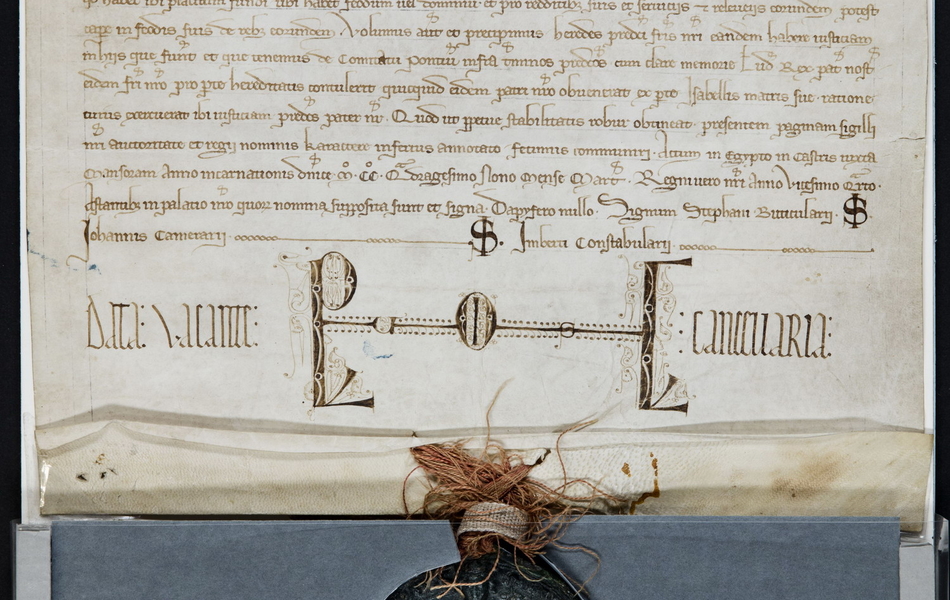 habet ibi placitum fundi ubi habet feodum vel dominiu et pro redditib; suis et serviciis releveiis eorundem potest
cape in feodis suis de reb; eorundem. Volumus aut et precipimus heredes predci fris nri eandem habere iusticiam
in hiis que sunt et que tenemus de Comitatu Pontivi infra tminos predcos cum clare memorie Lud Rex pat nost
eidem fri nro pro pte hereditatis contulerit quicquid eidem patri nro obvenerat ex pte Isabellis matris sue ratione
cuius exercuerat ibi iusticiam predcs pater nr. Quod ut ppetue stabilitatis robur obtineat presentem paginam sigilli
nri auctoritate et regii nominis karactere inferius annotato fecimus communiri. Actum in Egypto in Castris iuxta
Mansoram Anno incarnationis dnice Mo CCo Qdragesimo Nono Mense Mart. Regni vero nri Anno Vicesimo Qrto.
Astantib in palatio nro quor nomina supposita sunt et signa. Dapifero nullo. Signum Stephani Buticularii. S.
Johannis Camerarii. S. Imberti Constabularii.
DATA: VACANTE: : CANCELLARIA: